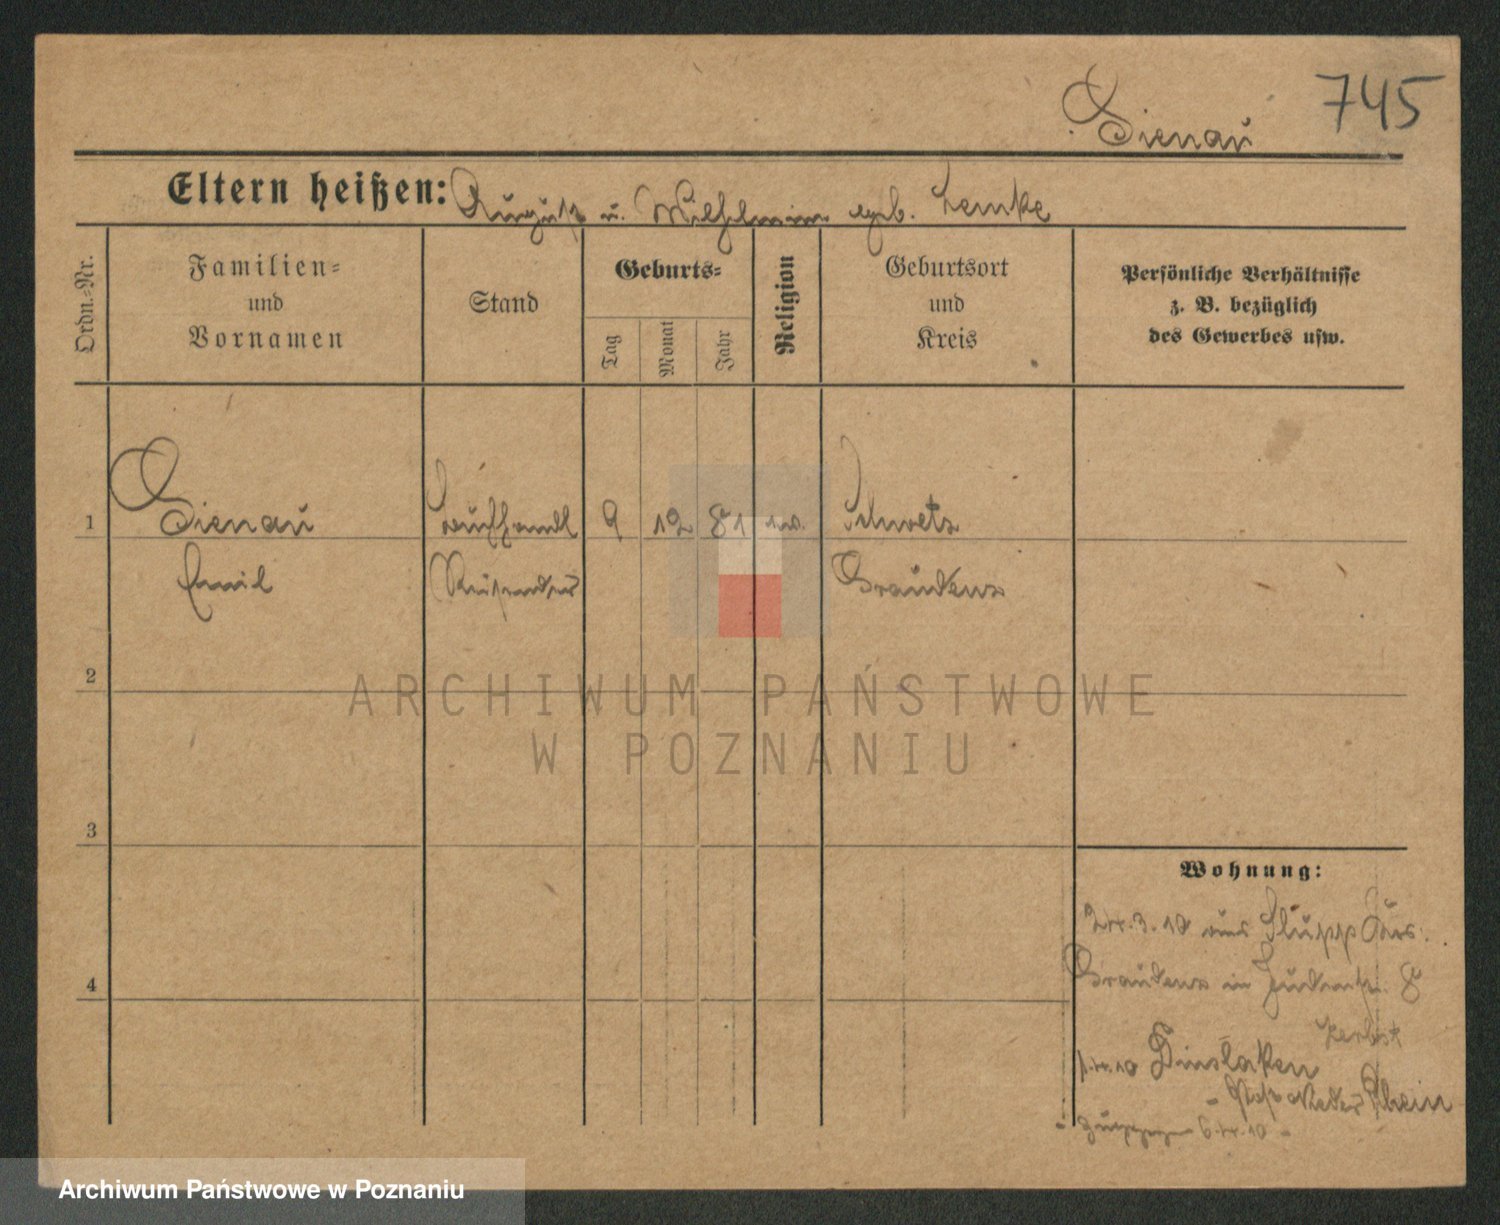 745
Dienau
Eltern heißen: August u. Wilhelmine geb. Lemke
Ordn.-Nr.
Familien-
und
Vornamen
Stand
Geburts-
Tag
Monat
Jahr
Religion
Geburtsort
und
Kreis
Persönliche Verhältnisse
z. B. bezüglich
des Gewerbes usw.
1
Dienau
9 12 81
Schwetz
Emil
Reisender
Graudenz
2
ARCHIWUM PAŃSTWOWE
W POZNANIU
3
Wohnung:
24.3.10 aus Slupp Krs.
4
Graudenz in Judenstr. 8
Zerbst
1.4.10 Dinslaken
Rhein
6.4.10
Archiwum Państwowe w Poznaniu